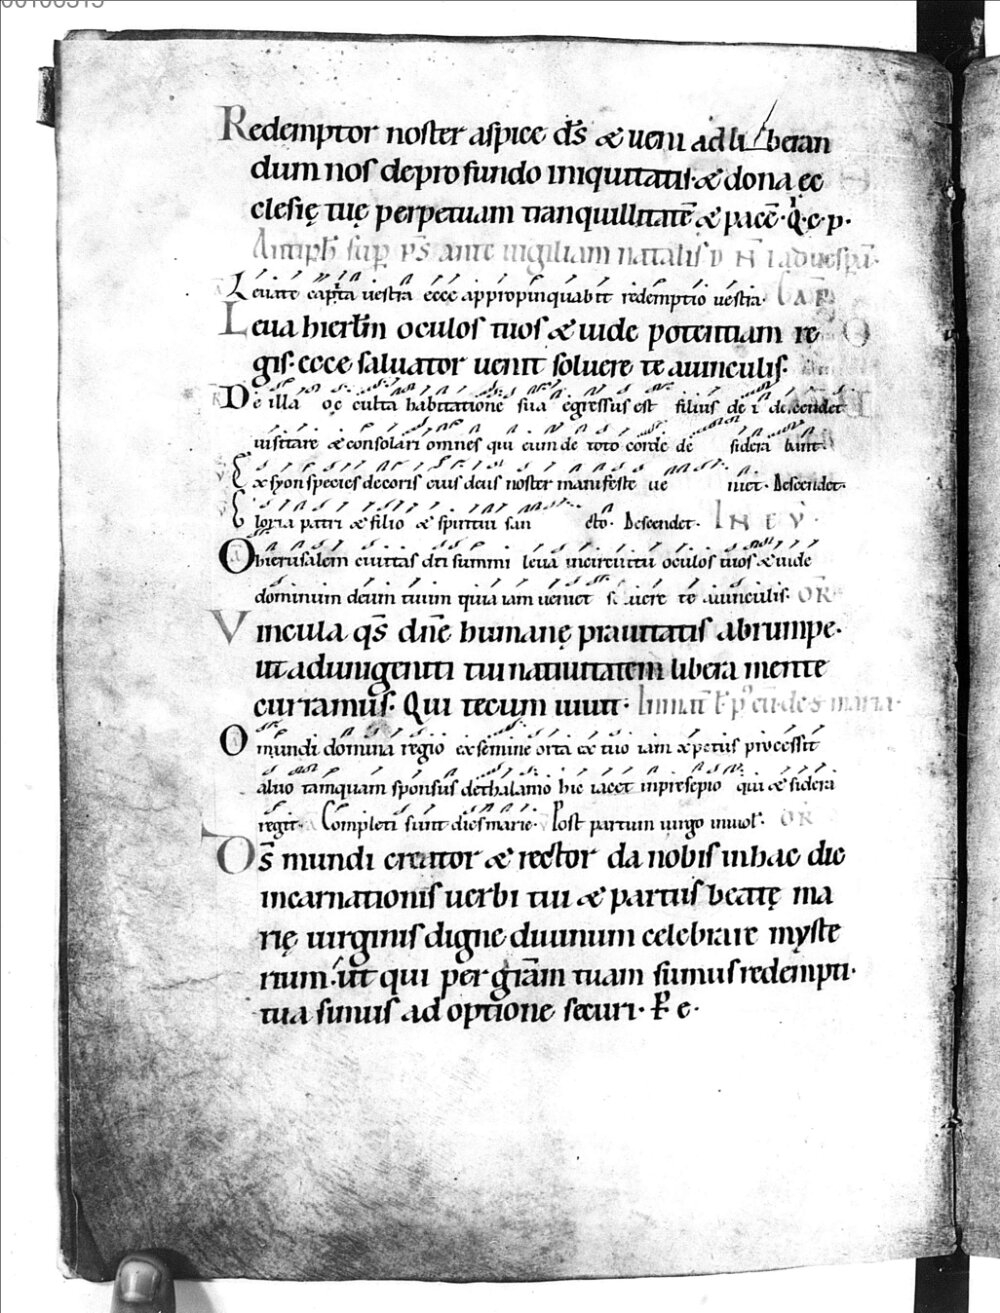 Redemptor noster aspice dūs & ueni ad liberan
dum nos deprofundo iniquitatis· & dona ęc
clesię tuę perpetuam tranquillitatē & pacē· Q· e· p·
Antiph sup p̄s ante uigiliam natalis
Leuate capita uestra ecce appropinquabit redemptio uestra·
Leua hierłm oculos tuos & uide potentiam re
gis· ecce saluator uenit soluere te a uinculis·
De illa occulta habitatione sua egressus est filius dei descendet
uisitare & consolari omnes qui eum de toto corde de sidera bant·
Ex syon species decoris eius deus noster manifeste ue niet· Descendet·
Gloria patri & filio & spiritui san cto· Descendet· IN EV·
O hierusalem ciuitas dei summi leua in circuitu oculos tuos & uide
dominum deum tuum quia iam ueniet te a uinculis· OR
Vincula qs̄ dn̄e humanę prauitatis abrumpe·
ut ad unigeniti tui natiuitatem libera mente
curramus· Qui tecum uiuit·
O mundi domina regio ex semine orta ex tuo iam xp̄etus processit
aluo tamquam sponsus de thalamo hic iacet in presepio qui & sidera
regit· Completi sunt dies marie· Post partum uirgo inuiol· OR
Ds̄ mundi creator & rector da nobis in hac die
incarnationis uerbi tui & partus beatę ma
rię uirginis digne diuinum celebrare myste
rium· ut qui per grām tuam sumus redempti·
tua simus adoptione securi· P e·